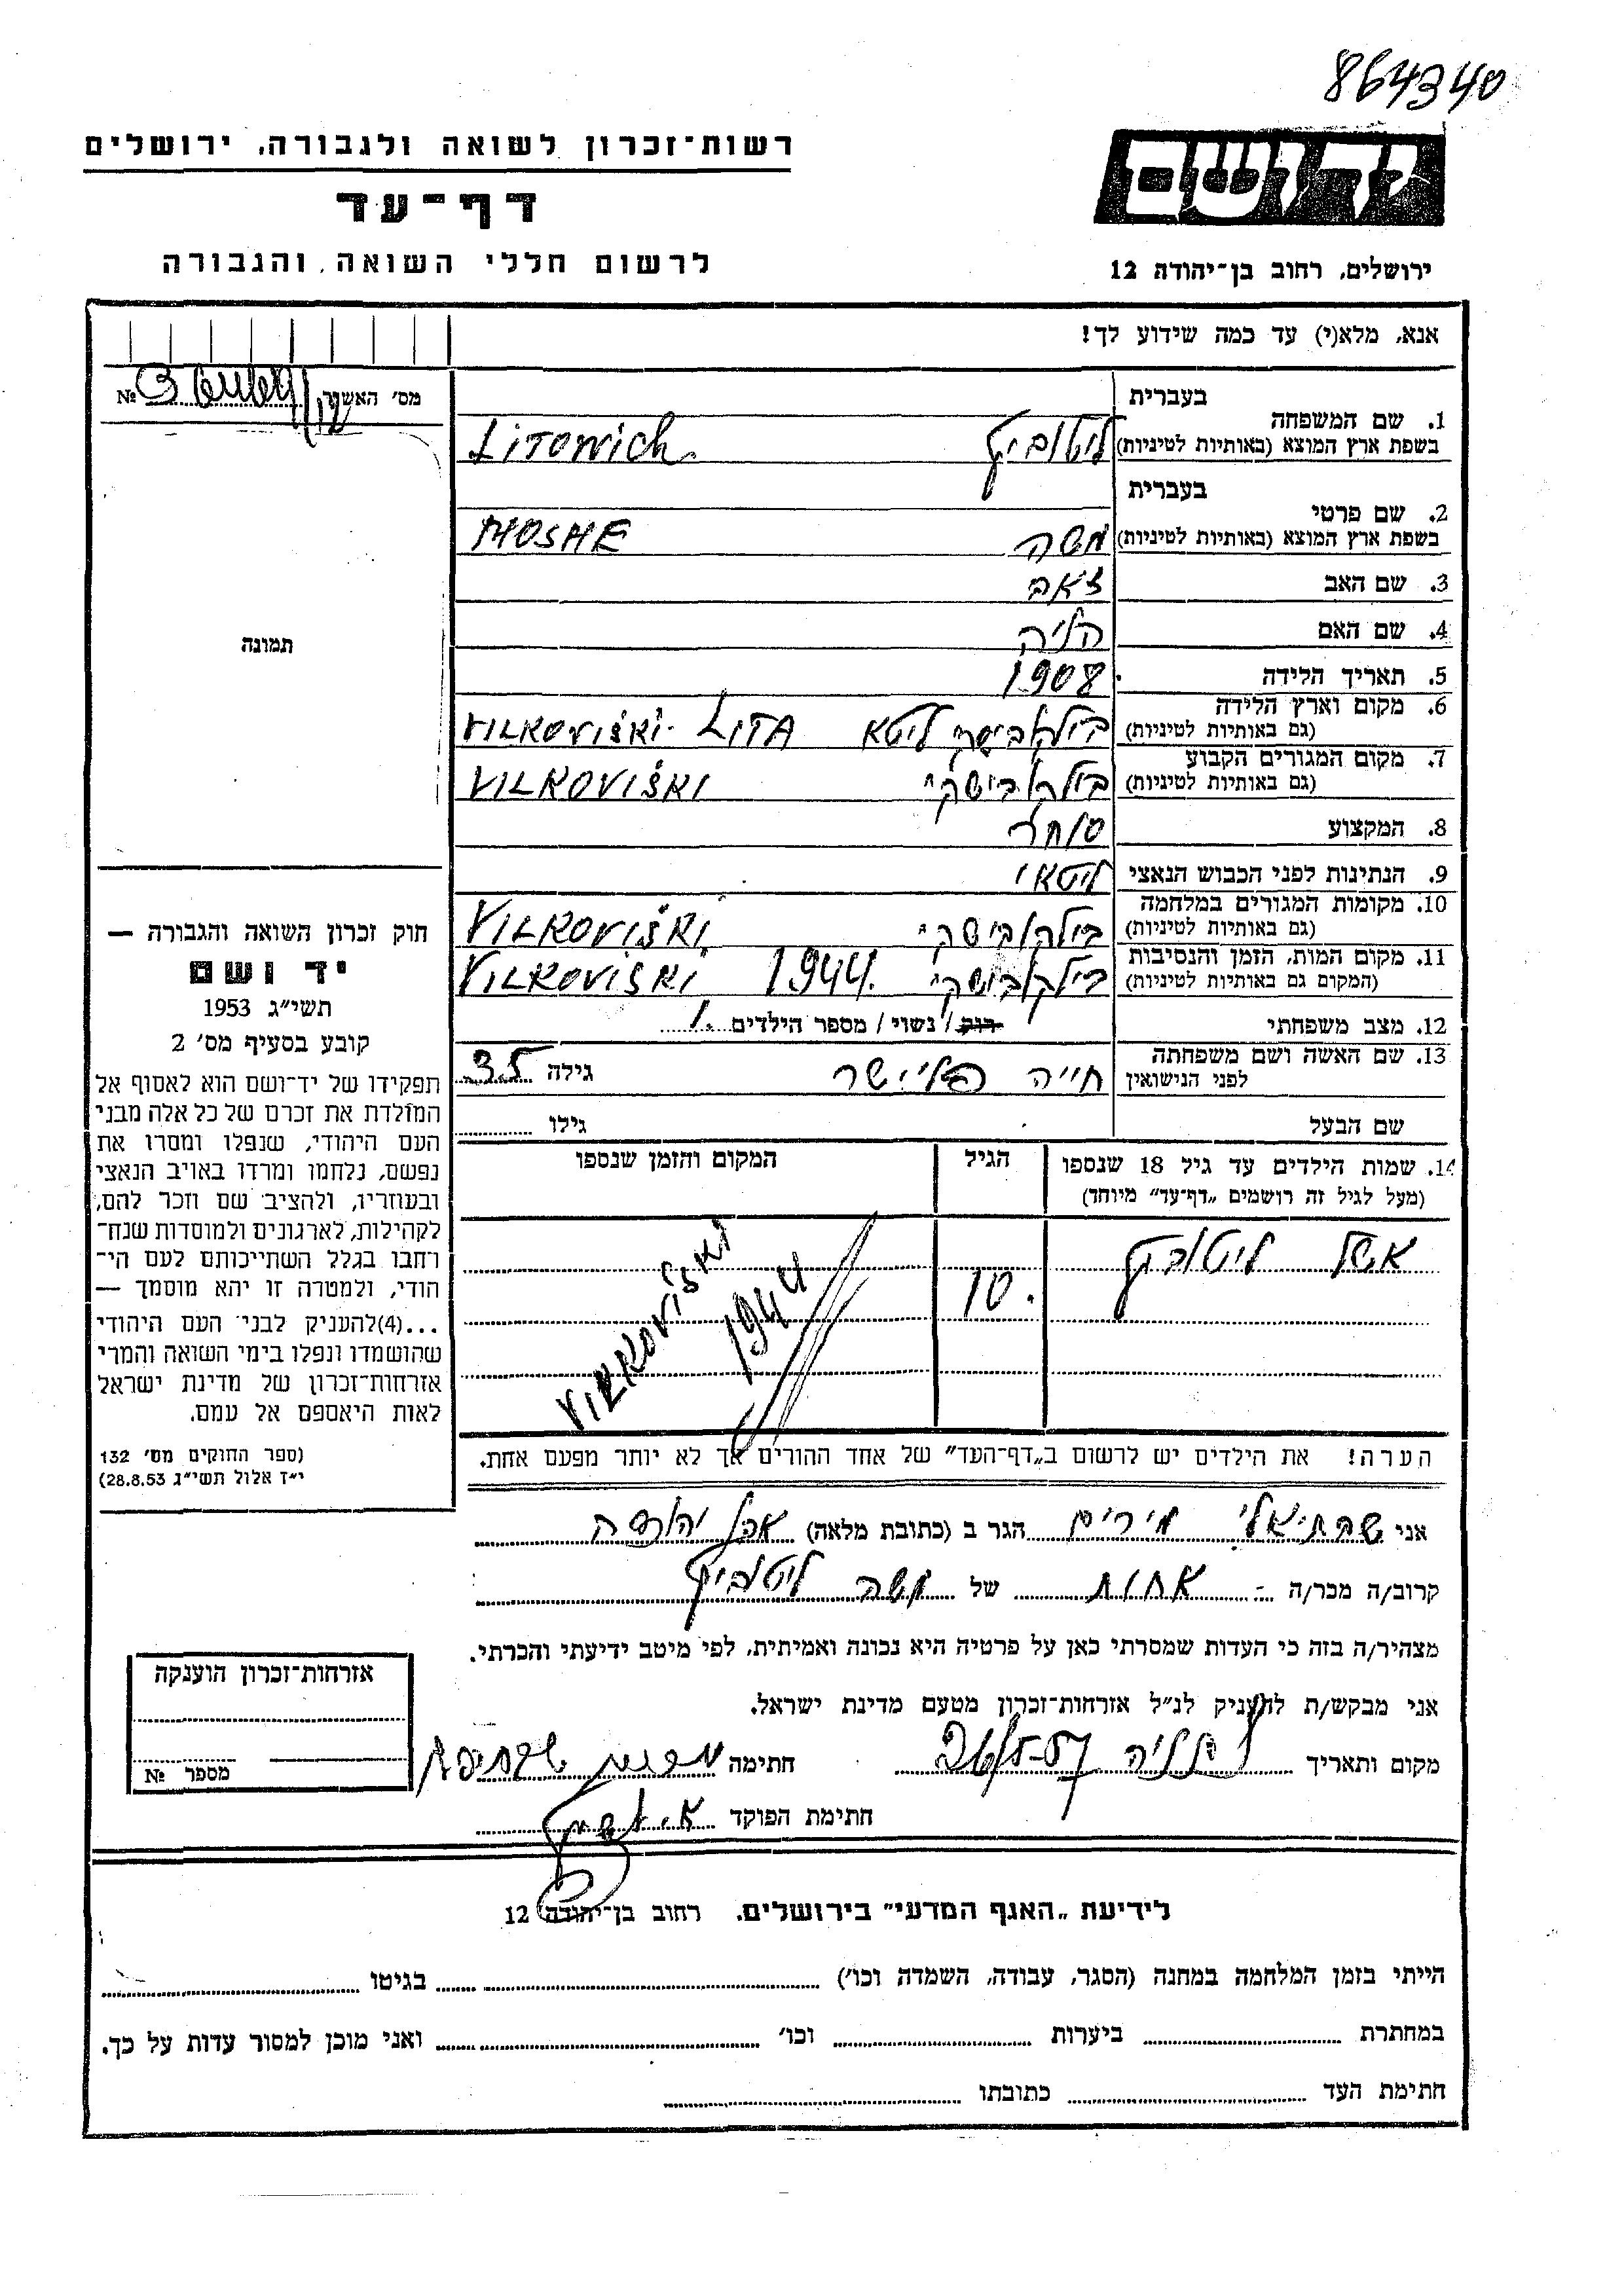 864340
יד ושם
רשות־זכרון לשואה ולגבורה, ירושלים
דף־עד
לרשום חללי השואה והגבורה
ירושלים, רחוב בן־יהודה 12
אנא, מלא(י) עד כמה שידוע לך!
מס׳ האשור
№
בעברית
1. שם המשפחה
בשפת ארץ המוצא (באותיות לטיניות)
ליטוביץ Litowich.
בעברית
2. שם פרטי
בשפת ארץ המוצא (באותיות לטיניות)
משה MOSHE
3. שם האב זאב
4. שם האם
5. תאריך הלידה 1908
6. מקום וארץ הלידה
(גם באותיות לטיניות)
וילקובישקי ליטא VILKOVIŠKI. LITA
7. מקום המגורים הקבוע
(גם באותיות לטיניות)
וילקובישקי VILKOVIŠKI
8. המקצוע סוחר
9. הנתינות לפני הכבוש הנאצי ליטאי
10. מקומות המגורים במלחמה
(גם באותיות לטיניות)
וילקובישקי VILKOVIŠKI
11. מקום המות, הזמן והנסיבות
(המקום גם באותיות לטיניות)
וילקובישקי 1944. VILKOVIŠKI
12. מצב משפחתי רוק / נשוי / מספר הילדים 1.
13. שם האשה ושם משפחתה
לפני הנישואין
חייה פליישר גילה 35
שם הבעל גילו
14. שמות הילדים עד גיל 18 שנספו
(מעל לגיל זה רושמים „דף־עד״ מיוחד)
הגיל
המקום והזמן שנספו
ליטוביץ
10.
VILKOVIŠKI
1944
הערה! את הילדים יש לרשום ב„דף־העד״ של אחד ההורים אך לא יותר מפעם אחת.
תמונה
חוק זכרון השואה והגבורה —
יד ושם
תשי״ג 1953
קובע בסעיף מס׳ 2
תפקידו של יד־ושם הוא לאסוף אל
המולדת את זכרם של כל אלה מבני
העם היהודי, שנפלו ומסרו את
נפשם, נלחמו ומרדו באויב הנאצי
ובעוזריו, ולהציב שם וזכר להם,
לקהילות, לארגונים ולמוסדות שנח־
רבו בגלל השתייכותם לעם הי־
הודי, ולמטרה זו יהא מוסמך —
...(4)להעניק לבני העם היהודי
שהושמדו ונפלו בימי השואה והמרי
אזרחות־זכרון של מדינת ישראל
לאות היאספם אל עמם.
(ספר החוקים מס׳ 132
י״ז אלול תשי״ג 28.8.53)
אני שבתיאלי מירים הגר ב (כתובת מלאה) אבן יהודה
קרוב/ה מכר/ה אחות של משה ליטוביץ
מצהיר/ה בזה כי העדות שמסרתי כאן על פרטיה היא נכונה ואמיתית, לפי מיטב ידיעתי והכרתי.
אני מבקש/ת להעניק לנ״ל אזרחות־זכרון מטעם מדינת ישראל.
מקום ותאריך נתניה 26/5-57 חתימה
חתימת הפוקד
אזרחות־זכרון הוענקה
מספר №
לידיעת „האגף המדעי״ בירושלים, רחוב בן־יהודה 12
הייתי בזמן המלחמה במחנה (הסגר, עבודה, השמדה וכו׳) בגיטו
במחתרת ביערות וכו׳ ואני מוכן למסור עדות על כך.
חתימת העד כתובתו